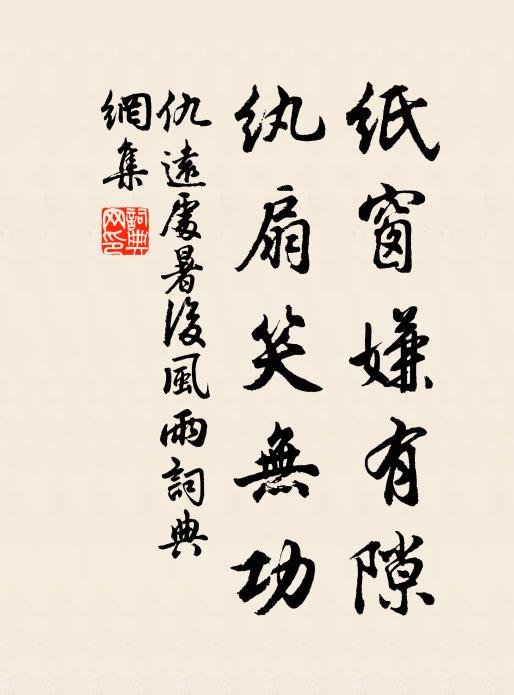 紙窗嫌有隙
紈扇笑無功
仇遠處暑後風雨詞典
網集
詞典網印